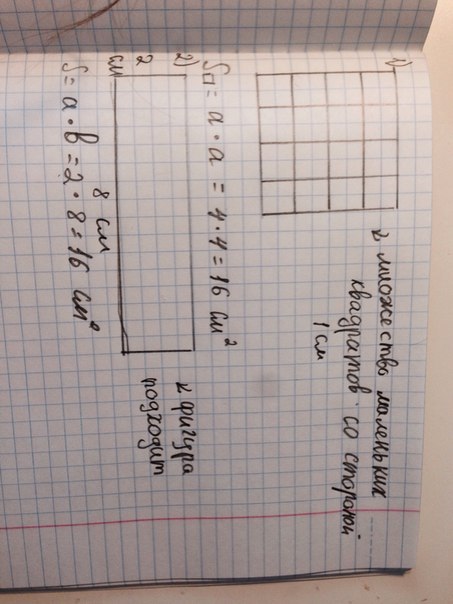 1)
↳ множество маленьких
квадратов со стороной
1 см
S□ = a · a = 4 · 4 = 16 см²
2)
2
см
8 см
к фигура
подходит
S = a · b = 2 · 8 = 16 см²